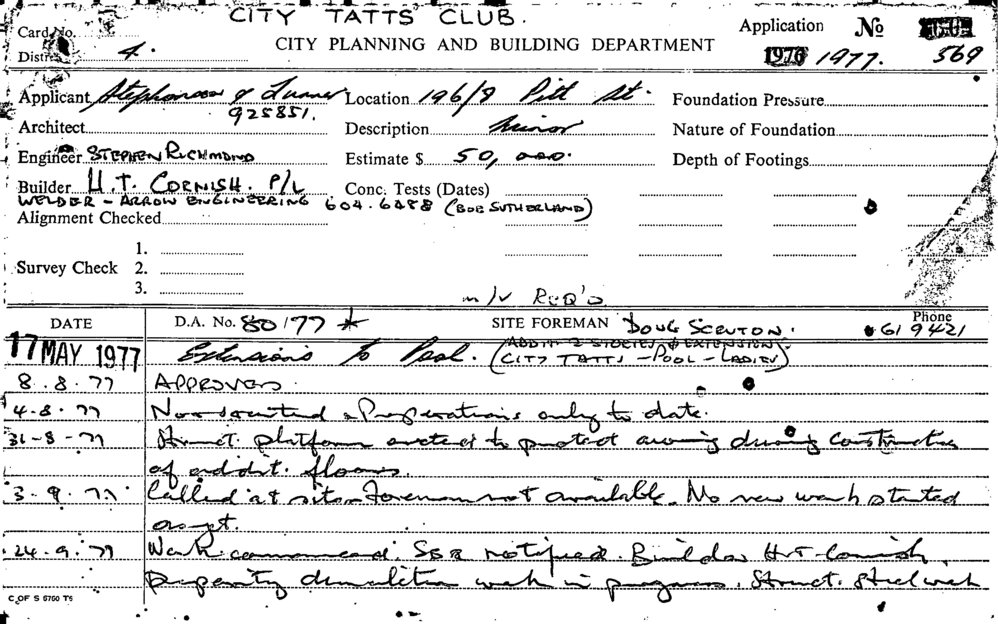 CITY TATTS CLUB.
Card No.
District 4.
CITY PLANNING AND BUILDING DEPARTMENT
Application No
1976 1977. 569
Applicant Stephenson & Turner Location 196/8 Pitt St. Foundation Pressure
925851.
Architect Description Minor Nature of Foundation
Engineer STEPHEN RICHMOND Estimate $ 50,000. Depth of Footings
Builder H.T. CORNISH. P/L Conc. Tests (Dates)
WELDER - ARROW ENGINEERING 604.6488 (BOB SUTHERLAND)
Alignment Checked
1.
Survey Check 2.
3.
m/v REQ'D
DATE D.A. No. 80/77 * SITE FOREMAN DOUG SCRUTON. Phone 619421
17 MAY 1977 Extensions to Pool. (ADDIT 2 STORIES & EXTENSION
CITY TATTS - POOL - LADIES)
8.8.77 APPROVED.
4-8.77 Non started. Preparations only to date.
31-8-77 Struct. platform erected to protect awning during construction
of addit. floors.
3.9.77 Called at site. Foreman not available. No new work started
as yet.
24.9.77 Work commenced. notified. Builder H.T. Cornish
demolition work in progress. Struct. steel work
C OF S 6760 T6